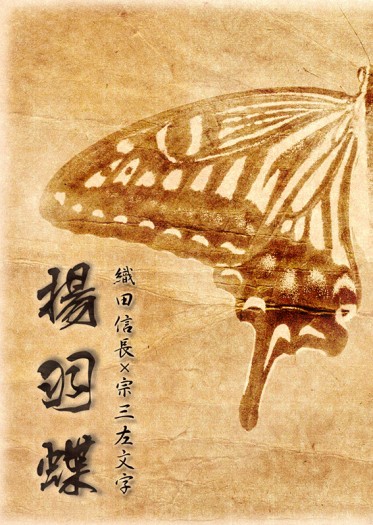 揚羽蝶
織田信長×宗三左文字